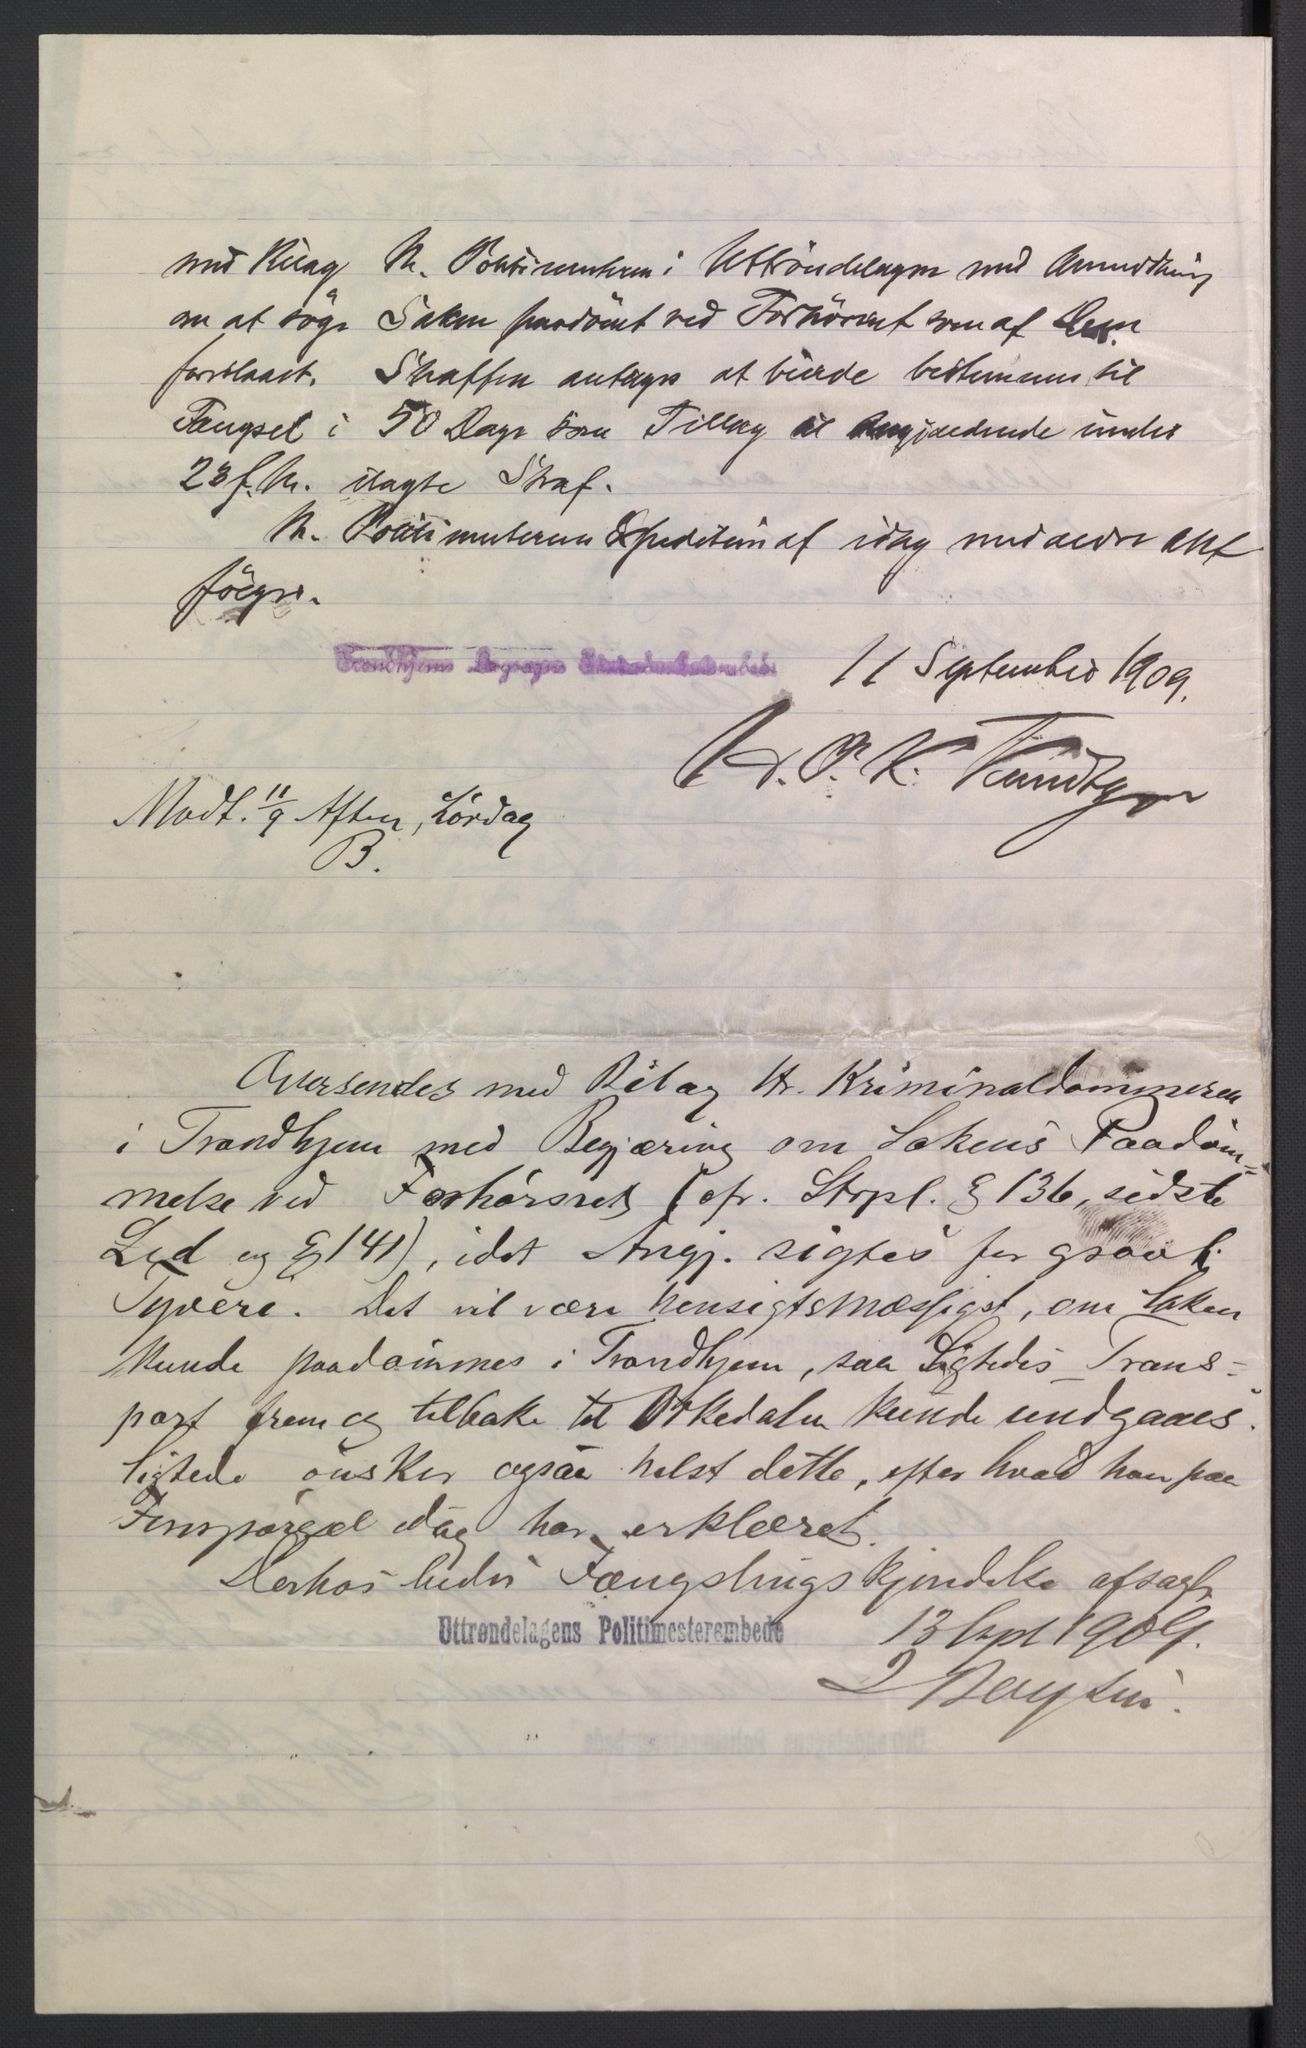 med Bilag Hr. Politimesteren i Uttrøndelagen med Anmodning
om at søge Saken paadömt ved Forhörsret som af Dem
foreslaaet. Straffen antages at burde bestemmes til
Fængsel i 50 Dage som Tillæg til Angjældende under
23 f. M. ilagte Straf.
Hr. Politimesterens Expedition af idag med ældre Akt
fölger.
Trondhjems Lagsogns Statsadvokatembede
11 September 1909.
Modt. 11/9 Aften, Lördag
B.
Oversendes med Bilag Hr. Kriminaldommeren
i Trondhjem med Begjæring om Sakens Paadöm=
melse ved Forhörsret (cfr. Strpl. § 136, sidste
Led og § 141), idet Angj. sigtes for grovt
Tyveri. Det vil være hensigtsmæssigst, om Saken
kunde paadömmes i Trondhjem, saa Sigtedes Trans=
port frem og tilbake til Orkedalen kunde undgaaes.
Sigtede önsker ogsaa helst dette, efter hvad han paa
Forespörgsel idag har erklæret.
Derhos bedes Fængslingskjendelse afsagt.
Uttrøndelagens Politimesterembede 13 Sept 1909.